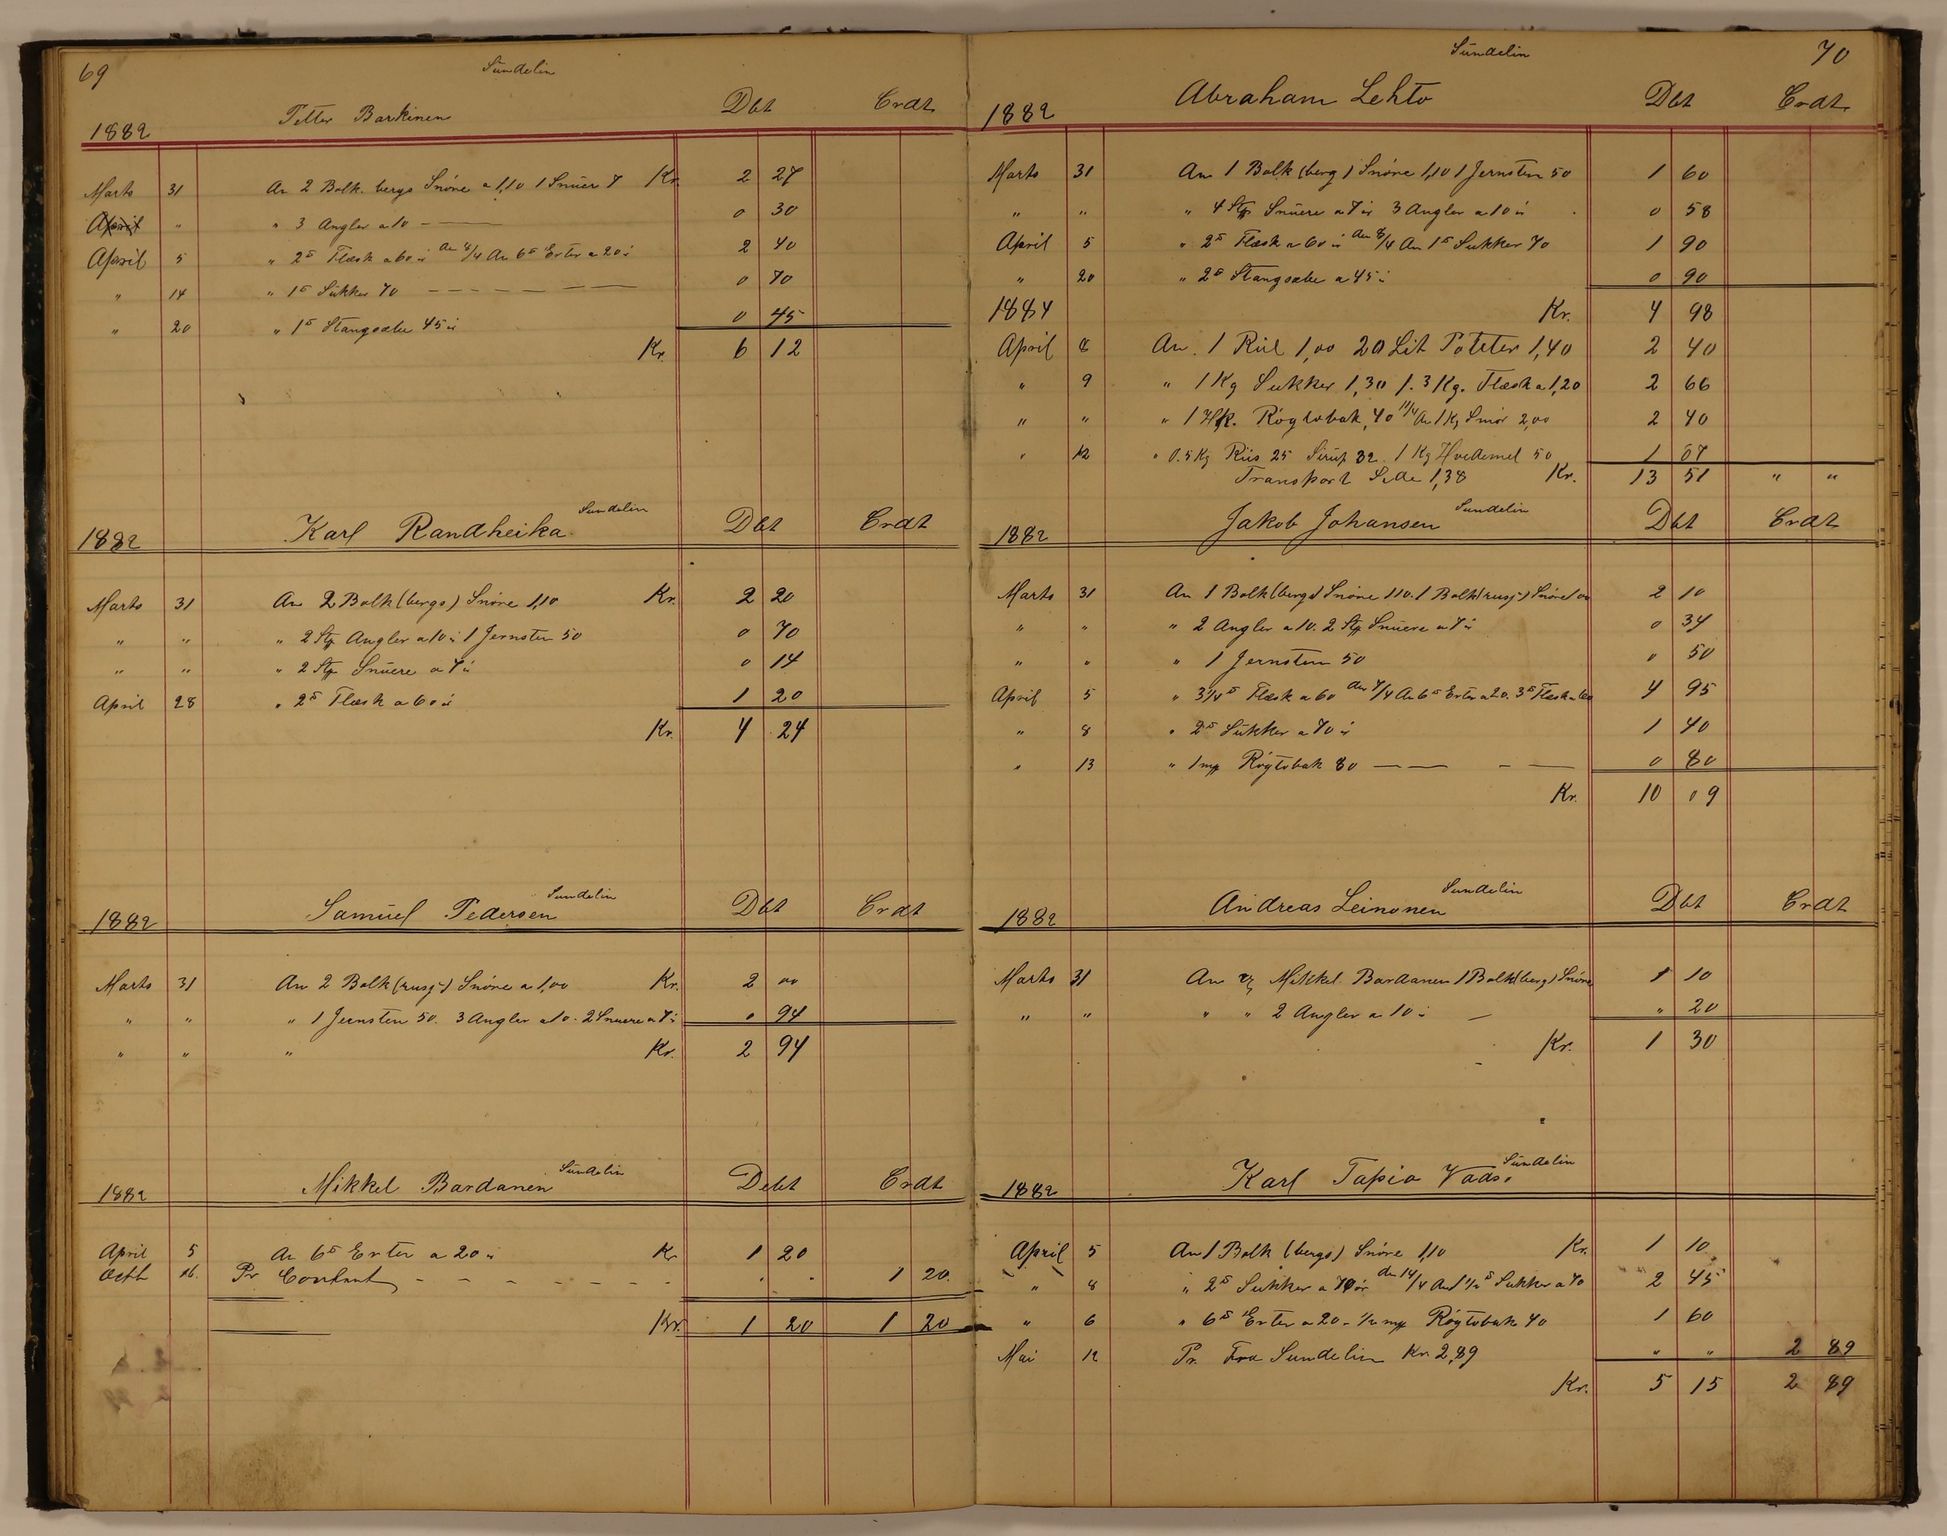 69
Sündelin
1882 Petter Barkinen Dbt Crdt
Marts 31 An 2 Bolk. bergs Snöre a 1,10 1 Snüer 7 Kr. 2 27
April " " 3 Angler a 10 0 30
April 5 " 2 ℔ Flæsk a 60 ör An 8/4 An 6 ℔ Erter a 20 ör 2 40
" 14 " 1 ℔ Sukker 70 0 70
" 20 " 1 ℔ Stangsæbe 45 ör 0 45
Kr. 6 12
1882 Karl Randheika Sundelin Dbt Crdt
Marts 31 An 2 Bolk (bergs) Snöre 1,10 Kr. 2 20
" " " 2 Stp Angler a 10 ör 1 Jernsten 50 0 70
" " " 2 Stp Snüere a 7 ör 0 14
April 28 " 2 ℔ Flæsk a 60 ör 1 20
Kr. 4 24
1882 Samüel Pedersen Sundelin Dbt Crdt
Marts 31 An 2 Bolk (rusj) Snöre a 1,00 Kr. 2 00
" " " 1 Jernsten 50. 3 Angler a 10 - 2 Snuere a 7 ör 0 94
" " " Kr. 2 94
1882 Mikkel Bardanen Sündelin Debt Crdt
April 5 An 6 ℔ Erter a 20 ör Kr 1 20
Octb 16. Pr Contant " " 1 20.
Kr. 1 20 1 20
Sündelin 70
1882 Abraham Lehto Dbt Crdt.
Marts 31 An 1 Bolk (berg) Snöre 1,10 1 Jernsten 50 1 60
" " " 4 Stp Snüere a 7 ör 3 Angler a 10 ör 0 58
April 5 " 2 ℔ Flæsk a 60 ör An 8/4 An 1 ℔ Sukker 70 1 90
" 20 " 2 ℔ Stangsæbe a 45 ör 0 90
1884 Kr. 4 98
April 8 An. 1 Riil 1,00 20 Lit Poteter 1,40 2 40
" 9 " 1 Kg Sukker 1,30 1.3 Kg. Flæsk a 1,20 2 66
" " " 1 Hk. Rögtobak ,40 11/4 An 1 Kg Smör 2,00 2 40
" 12 " 0.5 Kg Riis 25 Sirup 32 1 Kg Hvedemel 50 1 07
Transport Side 138 Kr. 13 51 " "
1882 Jakob Johansen Sundelin Dbt Crdt
Marts 31 An 1 Bolk (bergs) Snöre 110. 1 Bolk (rusj) Snöre 1 00 2 10
" " " 2 Angler a 10. 2 Stp Snüere a 7 ör 0 34
" " " 1 Jernsten 50 0 50
April 5 " 3 1/4 ℔ Flæsk a 60 den 7/4 An 6 ℔ Erter a 20. 3 ℔ Flæsk a 60 4 95
" 8 " 2 ℔ Sükker a 70 ör 1 40
" 13 " 1 mp Rögtobak 80 0 80
Kr. 10 09
1882 Andreas Leinonen Sundelin Dbt Crdt
Marts 31 An v/ Mikkel Bardanen 1 Bolk (berg) Snöre 1 10
" " " " 2 Angler a 10 ör " 20
Kr. 1 30
1882 Karl Tapio Vadsö Sündelin
April 5 An 1 Bolk (bergs) Snöre 1,10 Kr. 1 10
" 8 " 2 ℔ Sukker a 70 ör den 14/4 An 1 1/2 ℔ Sukker a 70 2 45
" 6 " 6 ℔ Erter a 20 - 1/2 mp Rögtobak 40 1 60
Mai 12 Pr. Fra Sundelin Kr 2,89 " " 2 89
Kr. 5 15 2 89